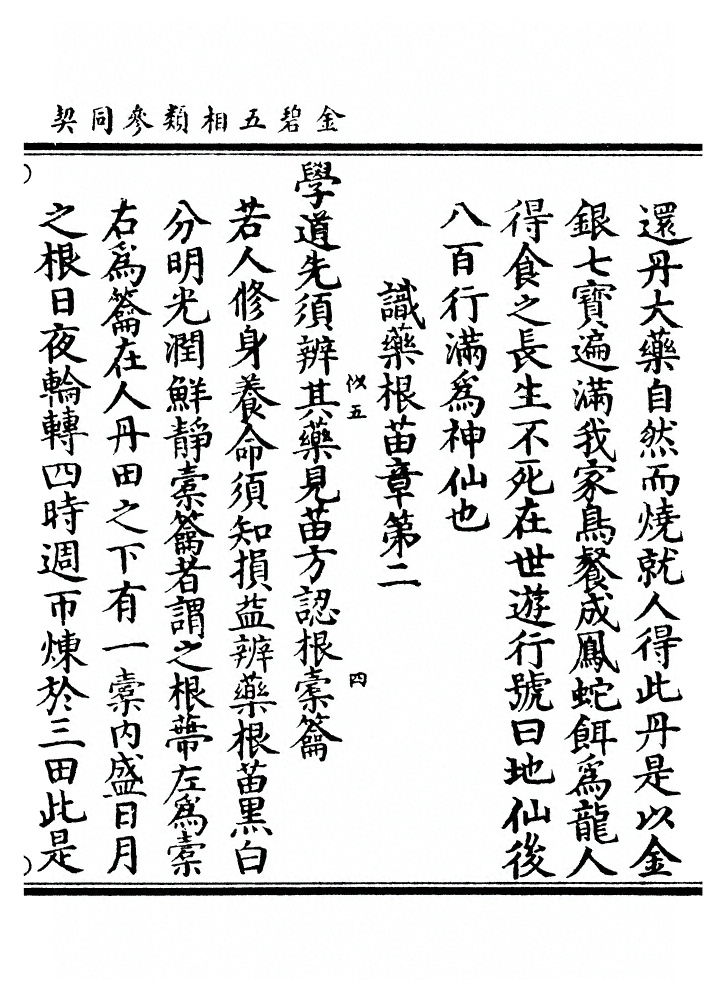 金碧五相類參同契
還丹大藥自然而燒就人得此丹是以金
銀七寶遍滿我家鳥餐成鳳蛇餌爲龍人
得食之長生不死在世遊行號曰地仙後
八百行滿爲神仙也
識藥根苗章第二
攸五
四
學道先須辨其藥見苗方認根橐籥
若人修身養命須知損益辨藥根苗黑白
分明光潤鮮靜橐籥者謂之根蔕左爲橐
右爲籥在人丹田之下有一橐內盛日月
之根日夜輪轉四時週帀煉於三田此是